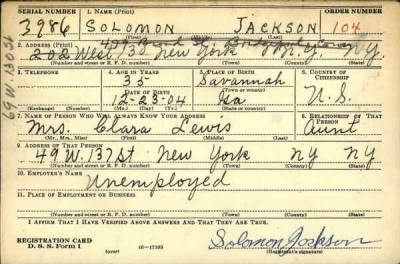 SERIAL NUMBER 1. NAME (Print) ORDER NUMBER
3986 SOLOMON JACKSON 104
(First) (Middle) (Last)
2. ADDRESS (Print)
202 West 133 New York N.Y. N.Y.
(Number and street or R. F. D. number) (Town) (County) (State)
3. TELEPHONE 4. AGE IN YEARS 5. PLACE OF BIRTH 6. COUNTRY OF CITIZENSHIP
35 Savannah
(Town or county)
DATE OF BIRTH
12-23-04 Ga U.S.
(Exchange) (Number) (Mo.) (Day) (Yr.) (State or country)
7. NAME OF PERSON WHO WILL ALWAYS KNOW YOUR ADDRESS 8. RELATIONSHIP OF THAT PERSON
Mrs. Clara Lewis Aunt
(Mr., Mrs., Miss) (First) (Middle) (Last)
9. ADDRESS OF THAT PERSON
49 W. 137 St. New York NY NY
(Number and street or R. F. D. number) (Town) (County) (State)
10. EMPLOYER'S NAME
Unemployed
11. PLACE OF EMPLOYMENT OR BUSINESS
(Number and street or R. F. D. number) (Town) (County) (State)
I AFFIRM THAT I HAVE VERIFIED ABOVE ANSWERS AND THAT THEY ARE TRUE.
REGISTRATION CARD
D. S. S. Form 1 (over) 16—17105 Solomon Jackson
(Registrant's signature)